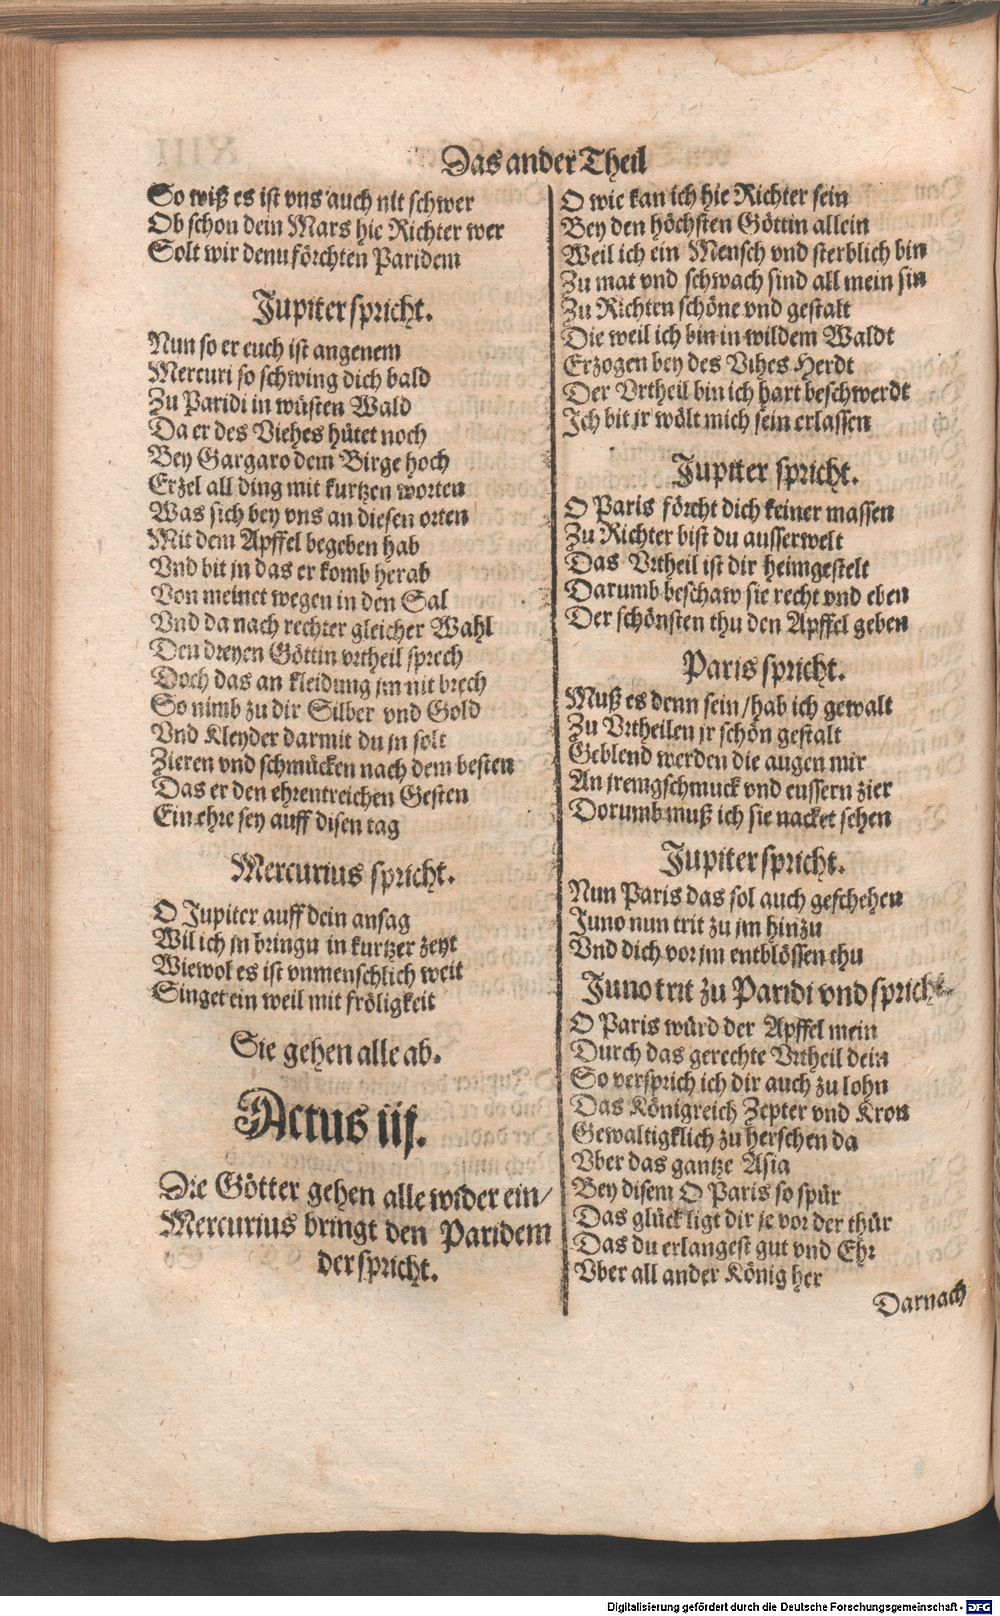 Das ander Theil
So wiß es ist vns auch nit schwer
Ob schon dein Mars hie Richter wer
Solt wir denn förchten Paridem
Jupiter spricht.
Nun so er euch ist angenem
Mercuri so schwing dich bald
Zu Paridi in wüsten Wald
Da er des Viehes hütet noch
Bey Gargaro dem Birge hoch
Erzel all ding mit kurtzen worten
Was sich bey vns an diesen orten
Mit dem Apffel begeben hab
Vnd bit jn das er komb herab
Von meinet wegen in den Sal
Vnd da nach rechter gleicher Wahl
Den dreyen Göttin vrtheil sprech
Doch das an kleidung jm nit brech
So nimb zu dir Silber vnd Gold
Vnd Kleyder darmit du jn solt
Zieren vnd schmücken nach dem besten
Das er den ehrentreichen Gesten
Ein ehre sey auff disen tag
Mercurius spricht.
O Jupiter auff dein ansag
Wil ich jn bringn in kurtzer zeyt
Wiewol es ist vnmenschlich weit
Singet ein weil mit fröligkeit
Sie gehen alle ab.
Actus iij.
Die Götter gehen alle wider ein/
Mercurius bringt den Paridem
der spricht.
O wie kan ich hie Richter sein
Bey den höchsten Göttin allein
Weil ich ein Mensch vnd sterblich bin
Zu mat vnd schwach sind all mein sin
Zu Richten schöne vnd gestalt
Die weil ich bin in wildem Waldt
Erzogen bey des Vihes Herdt
Der Vrtheil bin ich hart beschwerdt
Ich bit jr wölt mich sein erlassen
Jupiter spricht.
O Paris förcht dich keiner massen
Zu Richter bist du ausserwelt
Das Vrtheil ist dir heimgestelt
Darumb beschaw sie recht vnd eben
Der schönsten thu den Apffel geben
Paris spricht.
Muß es denn sein/hab ich gewalt
Zu Vrtheilen jr schön gestalt
Geblend werden die augen mir
An jremgschmuck vnd eussern zier
Dorumb muß ich sie nacket sehen
Jupiter spricht.
Nun Paris das sol auch geschehen
Juno nun trit zu jm hinzu
Vnd dich vor jm entblössen thu
Juno trit zu Paridi vnd spricht
O Paris würd der Apffel mein
Durch das gerechte Vrtheil dein
So versprich ich dir auch zu lohn
Das Königreich Zepter vnd Kron
Gewaltigklich zu herschen da
Vber das gantze Asia
Bey disem O Paris so spür
Das glück ligt dir je vor der thür
Das du erlangest gut vnd Ehr
Vber all ander König her
Darnach
Digitalisierung gefördert durch die Deutsche Forschungsgemeinschaft - DFG